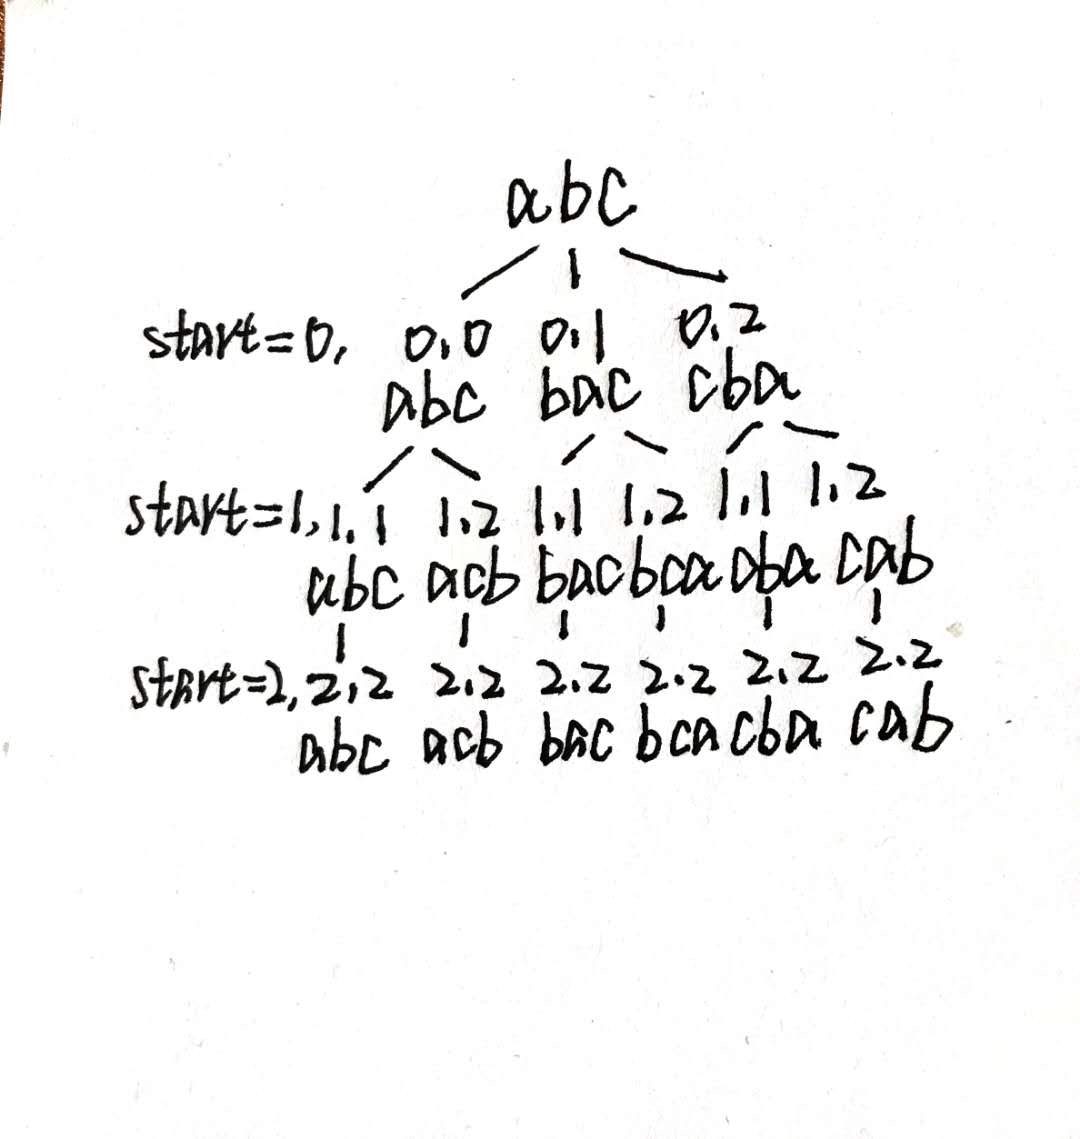 abc
start=0, 0,0 0,1 0,2
abc bac cba
start=1,1,1 1,2 1,1 1,2 1,1 1,2
abc acb bac bca cba cab
start=2,2,2 2,2 2,2 2,2 2,2 2,2
abc acb bac bca cba cab